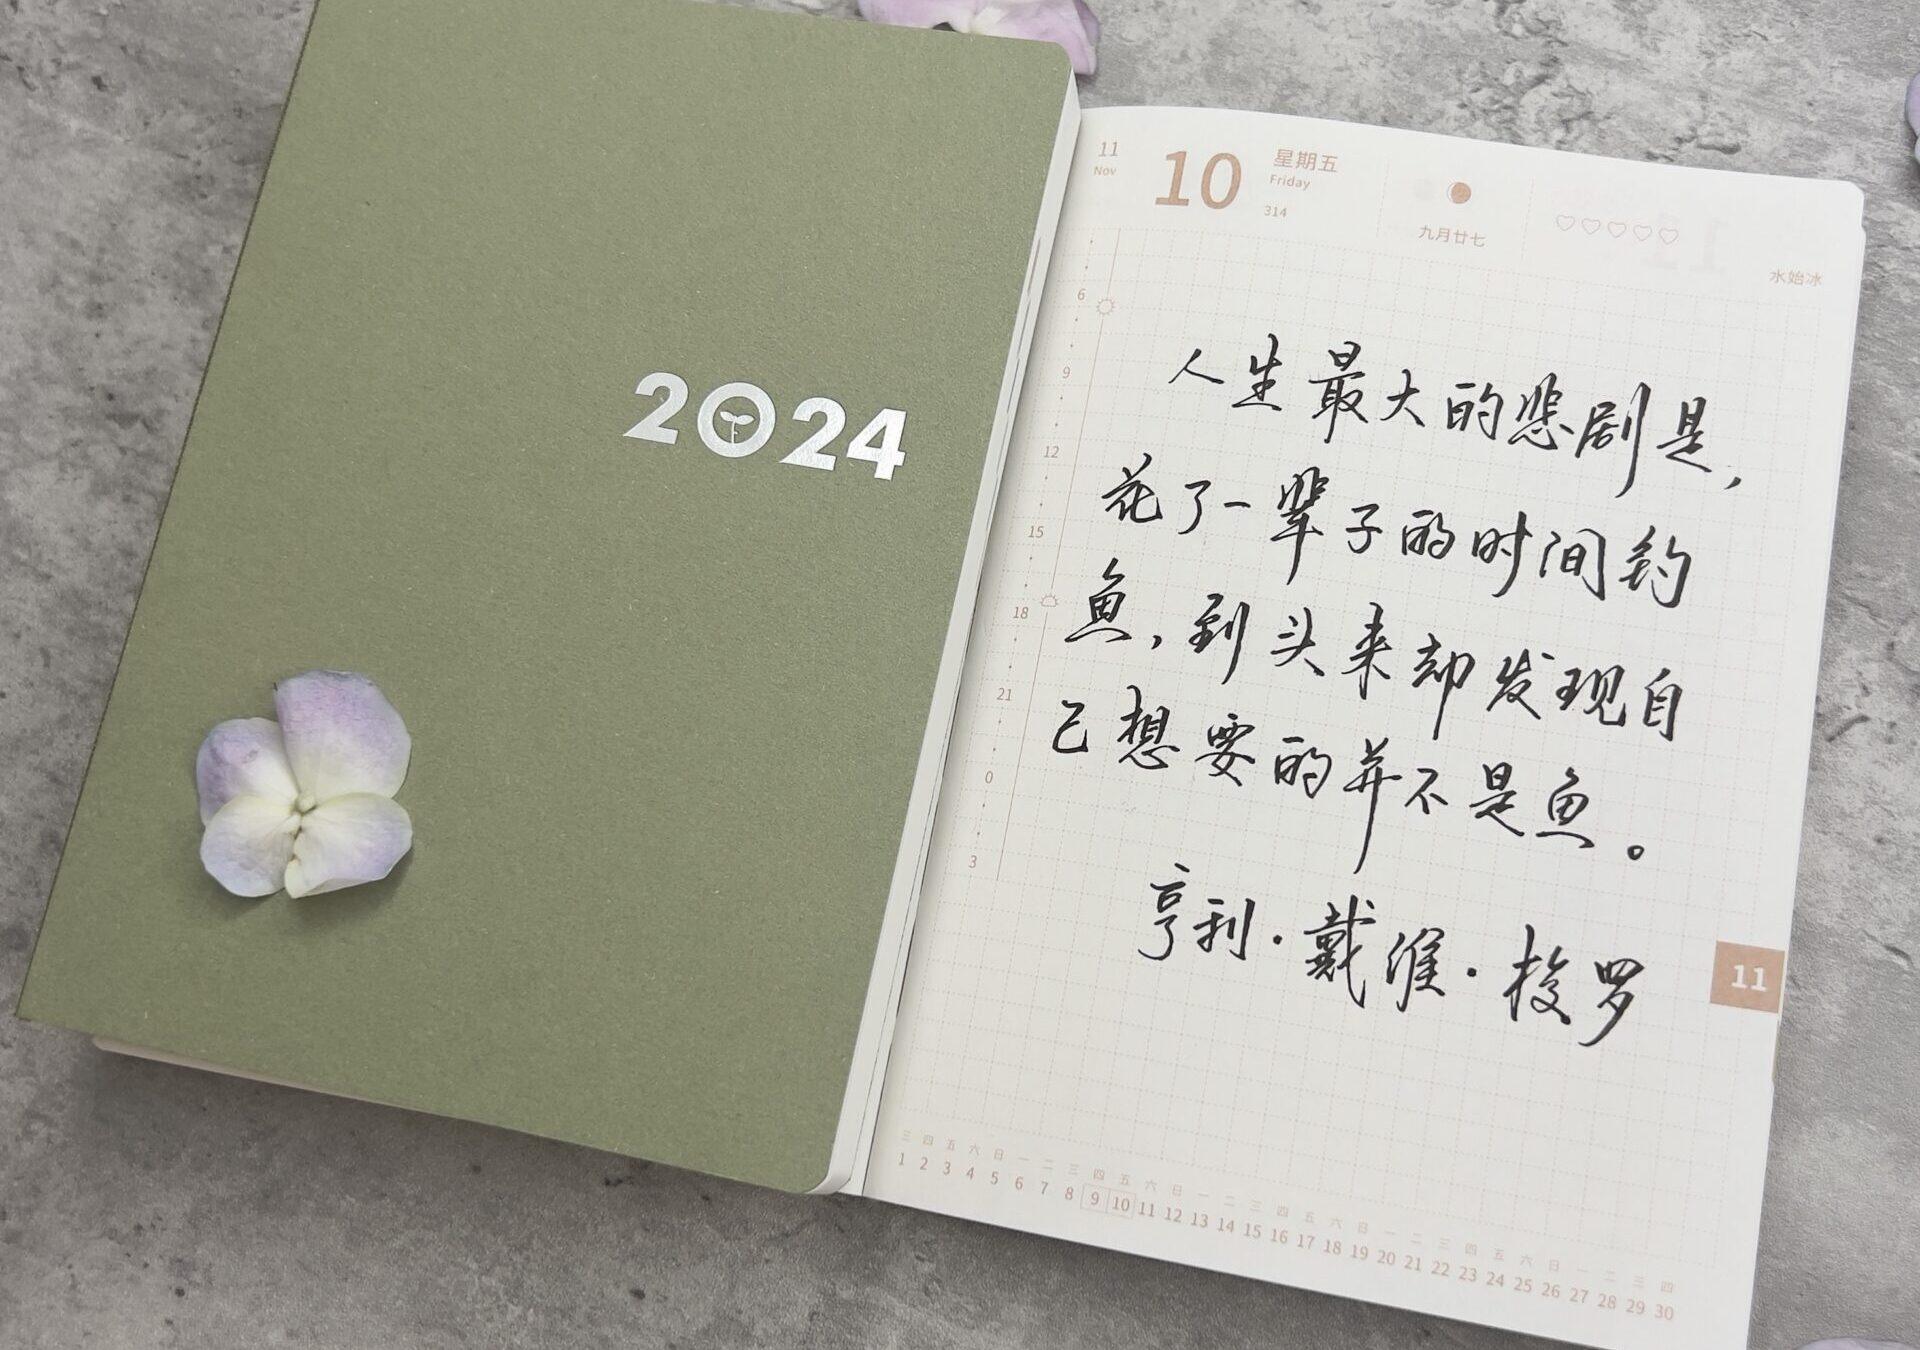 2024
11
Nov
10
星期五
Friday
314
九月廿七
水始冰
6
9
12
15
18
21
0
3
人生最大的悲剧是，
花了一辈子的时间钓
鱼，到头来却发现自
己想要的并不是鱼。
亨利·戴维·梭罗
11
三 四 五 六 日 一 二 三 四 五 六 日 一 二 三 四 五 六 日 一 二 三 四 五 六 日 一 二 三 四
1 2 3 4 5 6 7 8 9 10 11 12 13 14 15 16 17 18 19 20 21 22 23 24 25 26 27 28 29 30